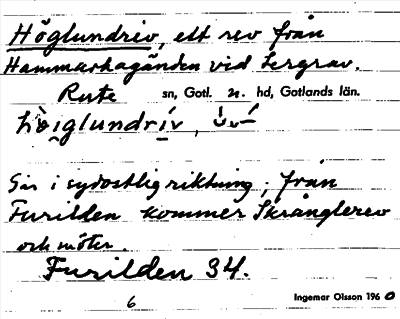 Höglundrev, ett rev från
Hammarhagänden vid Lergrav.
Rute sn, Gotl. n. hd, Gotlands län.
Går i sydostlig riktning, från
Furilden kommer Skränglerev
och möter.
Furilden 34.
6 Ingemar Olsson 1960